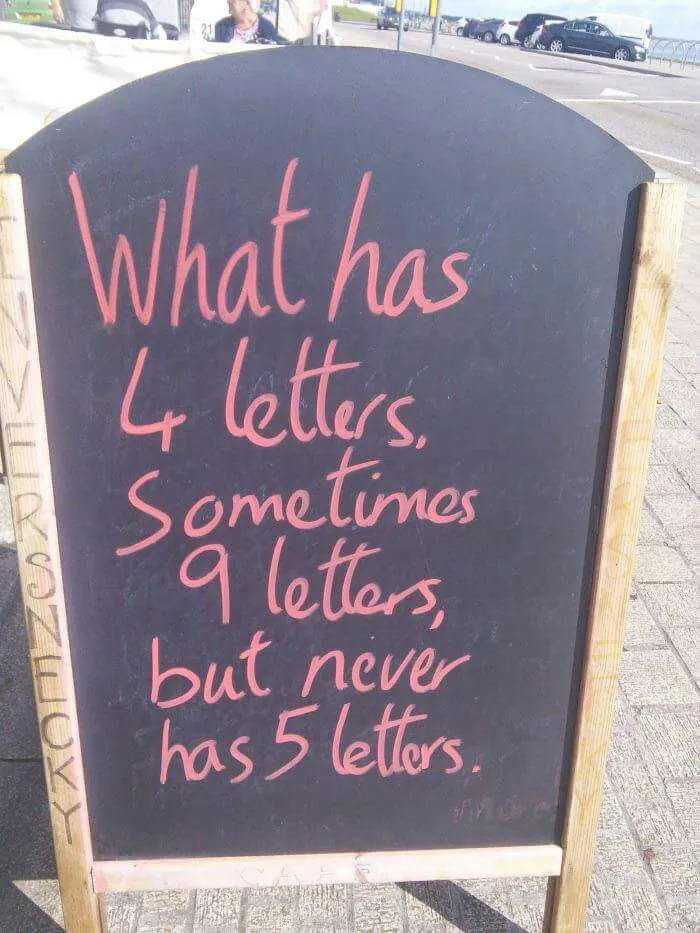 21
What has
4 letters,
Sometimes
9 letters,
but never
has 5 letters.
INVERSNECKY
CAFE